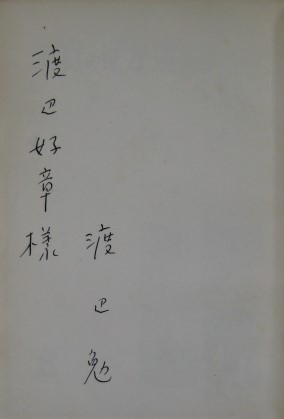 渡辺好章様
渡辺勉